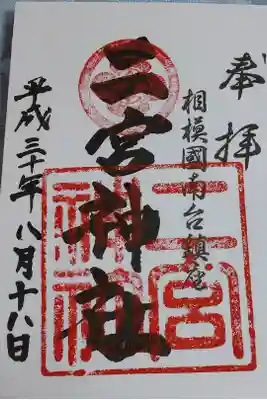 奉拝
相模國南台鎮座
二宮神社
平成三十年八月十八日